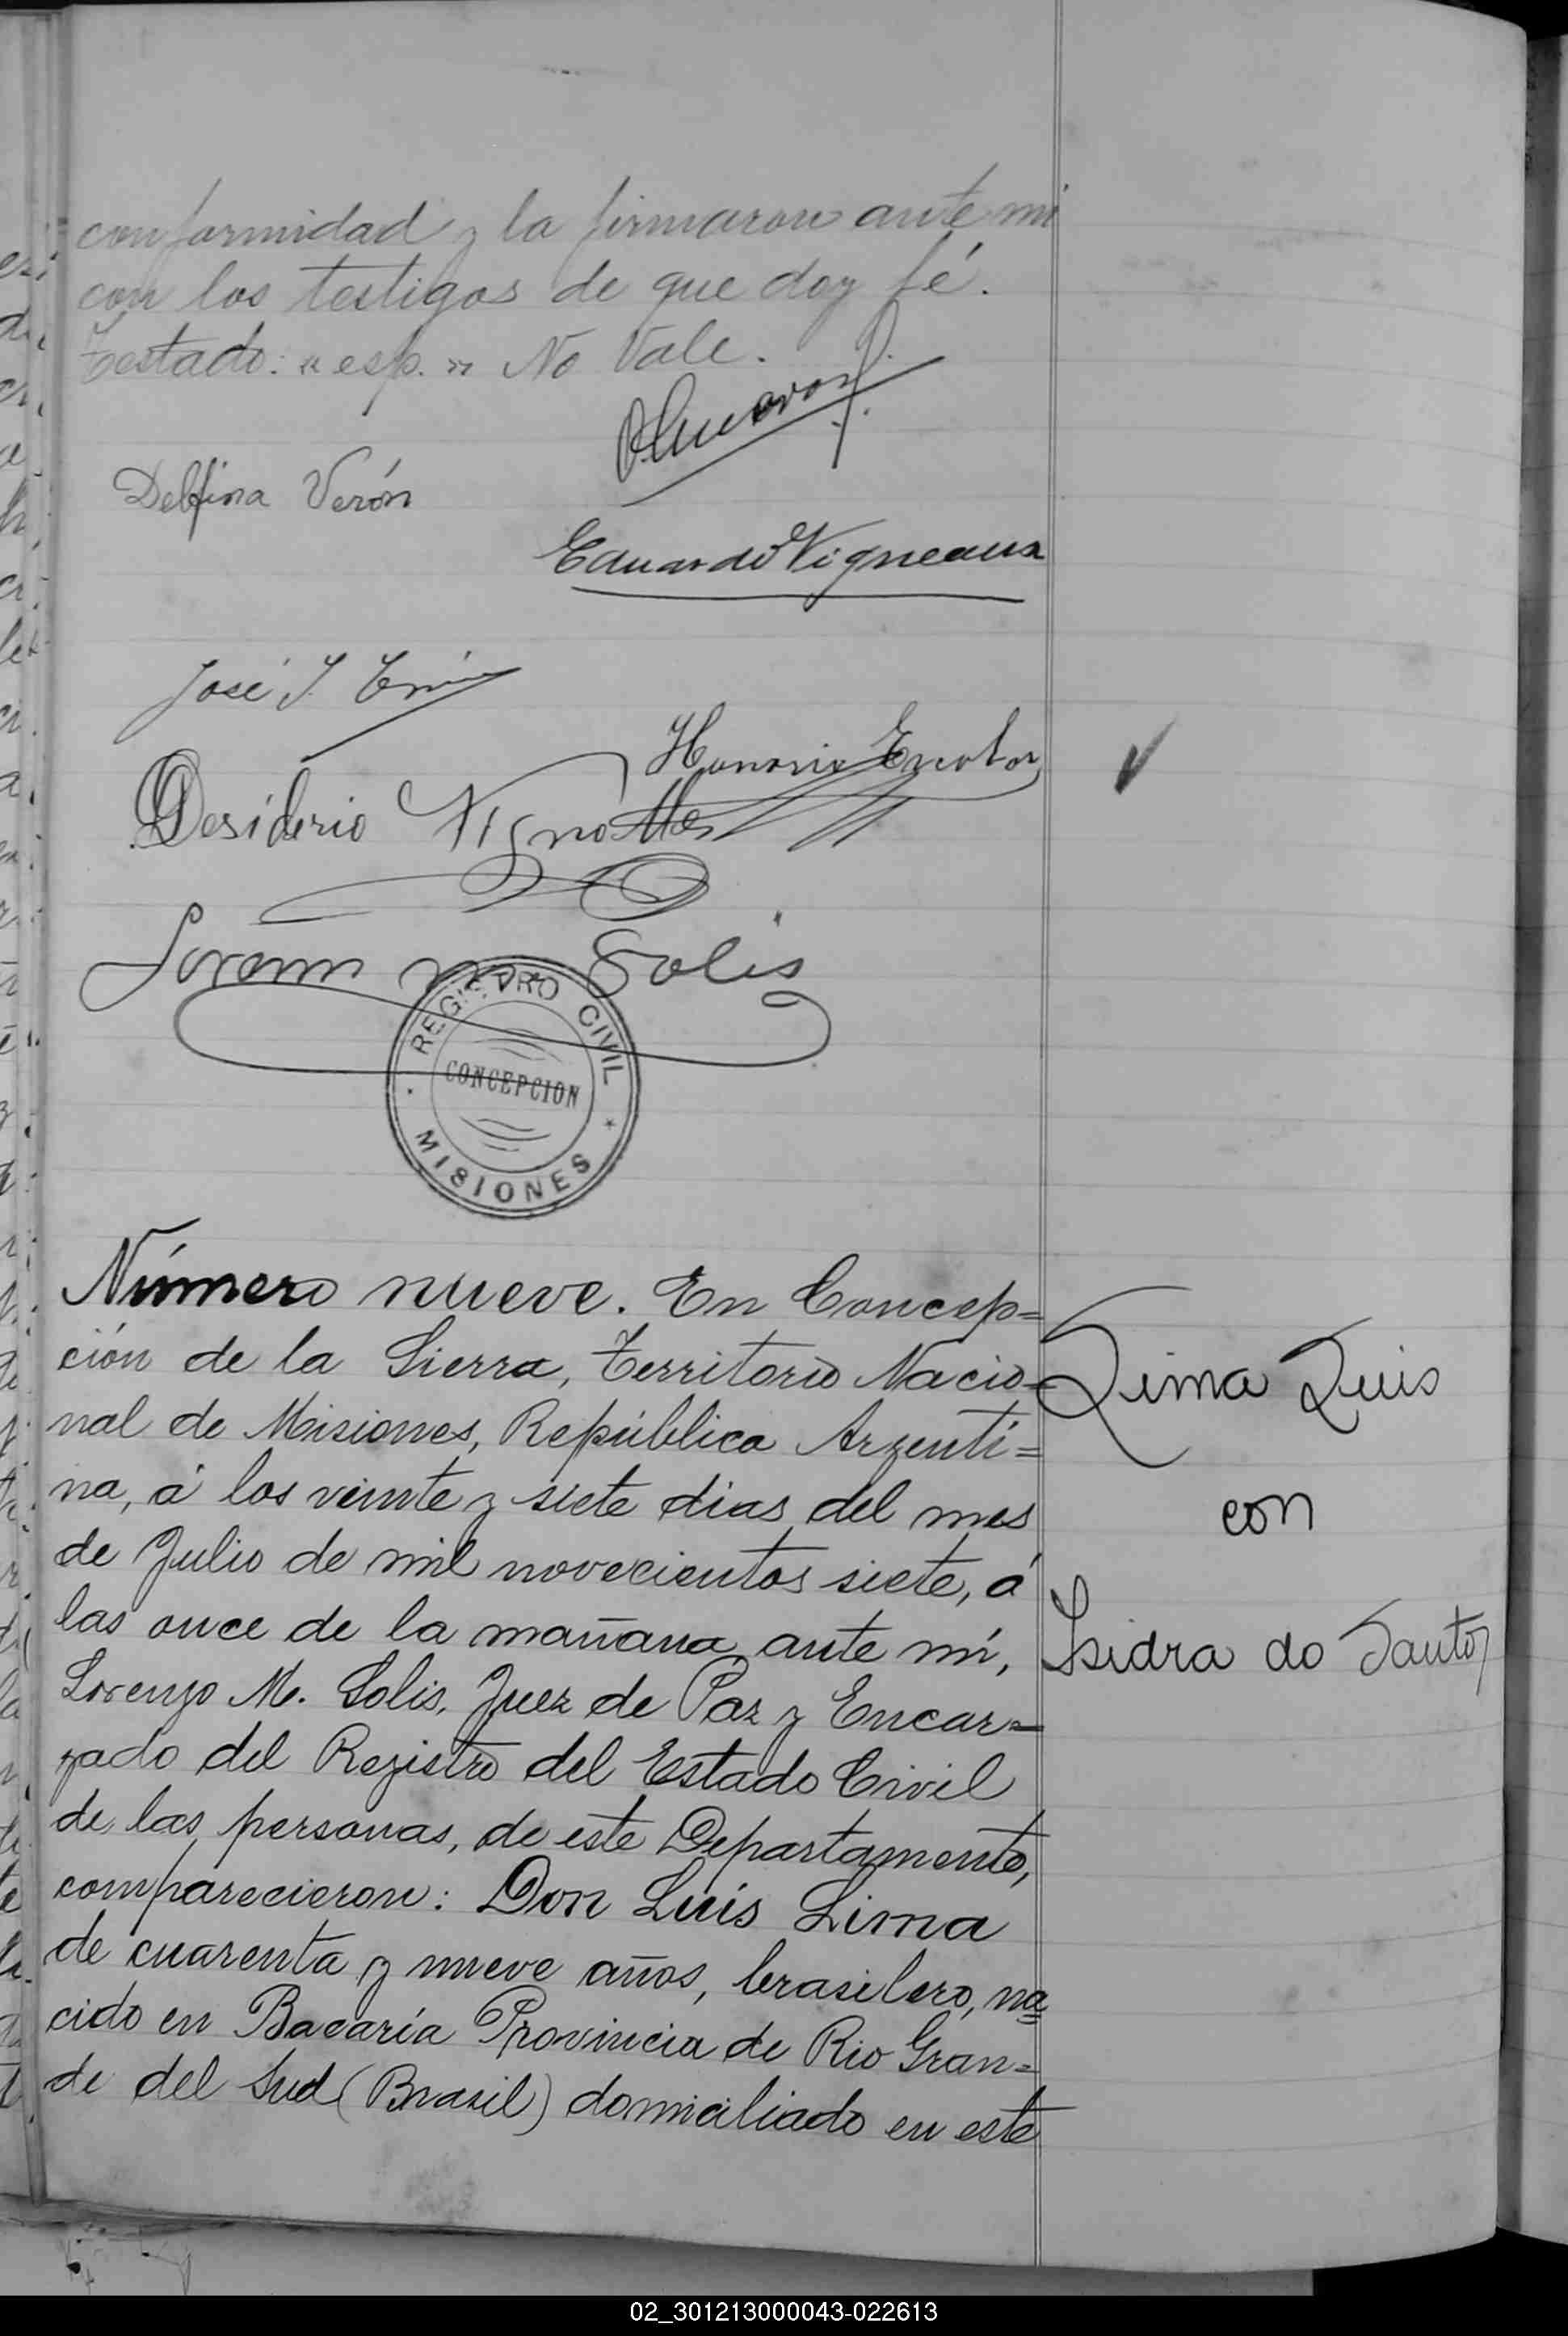 conformidad y la firmaron ante mi
con los testigos de que doy fé.
Testado: "esp." No Vale.
Delfina Verón
Eduardo Vigneaux
José J.
Honorio Escobar
Desiderio
Lorenzo M. Solis
REGISTRO CIVIL
CONCEPCION
MISIONES
Número nueve. En Concep=
ción de la Sierra, Territorio Nacio=
nal de Misiones, República Argenti=
na, á los veinte y siete dias del mes
de Julio de mil novecientos siete, á
las once de la mañana, ante mí,
Lorenzo M. Solis, Juez de Paz y Encar=
gado del Registro del Estado Civil
de las personas, de este Departamento,
comparecieron: Don Luis Lima
de cuarenta y nueve años, brasilero, na=
cido en Bacaría Provincia de Rio Gran=
de del Sud (Brasil) domiciliado en este
Lima Luis
con
Isidra do Santos
02_301213000043-022613